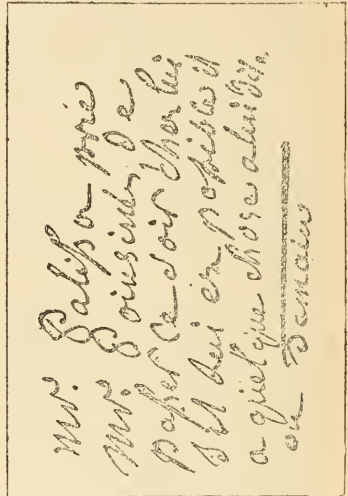 mr. Palisso prie
mr. Poinsinet De
passer Ce soir cher lui
sil lui ez posible il
a quelque chose a lui dire
ou Demain